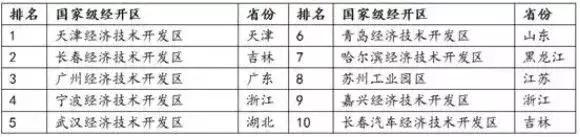 排名 国家级经开区 省份 排名 国家级经开区 省份
1 天津经济技术开发区 天津 6 青岛经济技术开发区 山东
2 长春经济技术开发区 吉林 7 哈尔滨经济技术开发区 黑龙江
3 广州经济技术开发区 广东 8 苏州工业园区 江苏
4 宁波经济技术开发区 浙江 9 嘉兴经济技术开发区 浙江
5 武汉经济技术开发区 湖北 10 长春汽车经济技术开发区 吉林